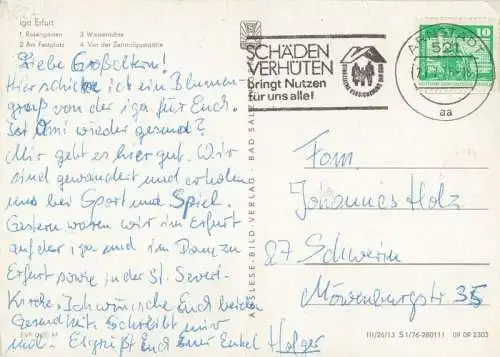 iga Erfurt
1 Rosengarten 3 Wasserachse
2 Am Festplatz 4 Vor der Zentralgaststätte
Liebe Großeltern!
Hier schicke ich ein Blumen-
gruß von der iga für Euch.
Ist Omi wieder gesund?
Mir geht es hier gut. Wir
sind gewandert und erholen
uns bei Sport und Spiel.
Gestern waren wir in Erfurt
auf der iga und im Dom zu
Erfurt sowie in der St. Severi-
Kirche. Ich wünsche Euch beide
Gesundheit. Schreibt mir
mal. Es grüßt Euch Euer Enkel Holger
SCHÄDEN
VERHÜTEN
bringt Nutzen
für uns alle!
ARNSTADT
521
aa
10
DDR
AUSLESE-BILD-VERLAG · BAD SALZ
Fam.
Johannes Holz
87 Schwerin
Möwenburgstr 35
III/26/13 S 1/76-280111 09 09 2303